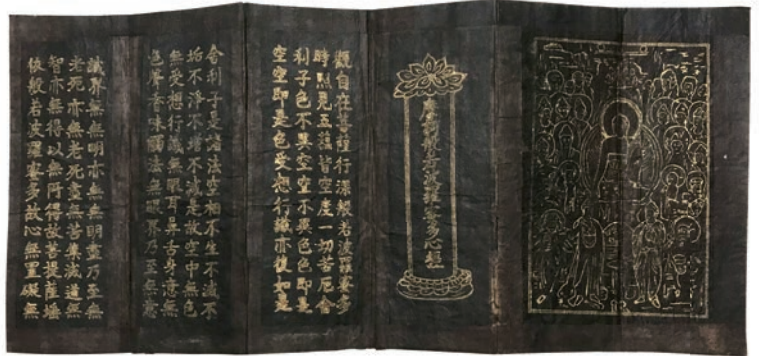 摩訶般若波羅蜜多心經
觀自在菩薩行深般若波羅蜜多
時照見五蘊皆空度一切苦厄舍
利子色不異空空不異色色即是
空空即是色受想行識亦復如是
舍利子是諸法空相不生不滅不
垢不淨不增不減是故空中無色
無受想行識無眼耳鼻舌身意無
色聲香味觸法無眼界乃至無意
識界無無明亦無無明盡乃至無
老死亦無老死盡無苦集滅道無
智亦無得以無所得故菩提薩埵
依般若波羅蜜多故心無罣礙無